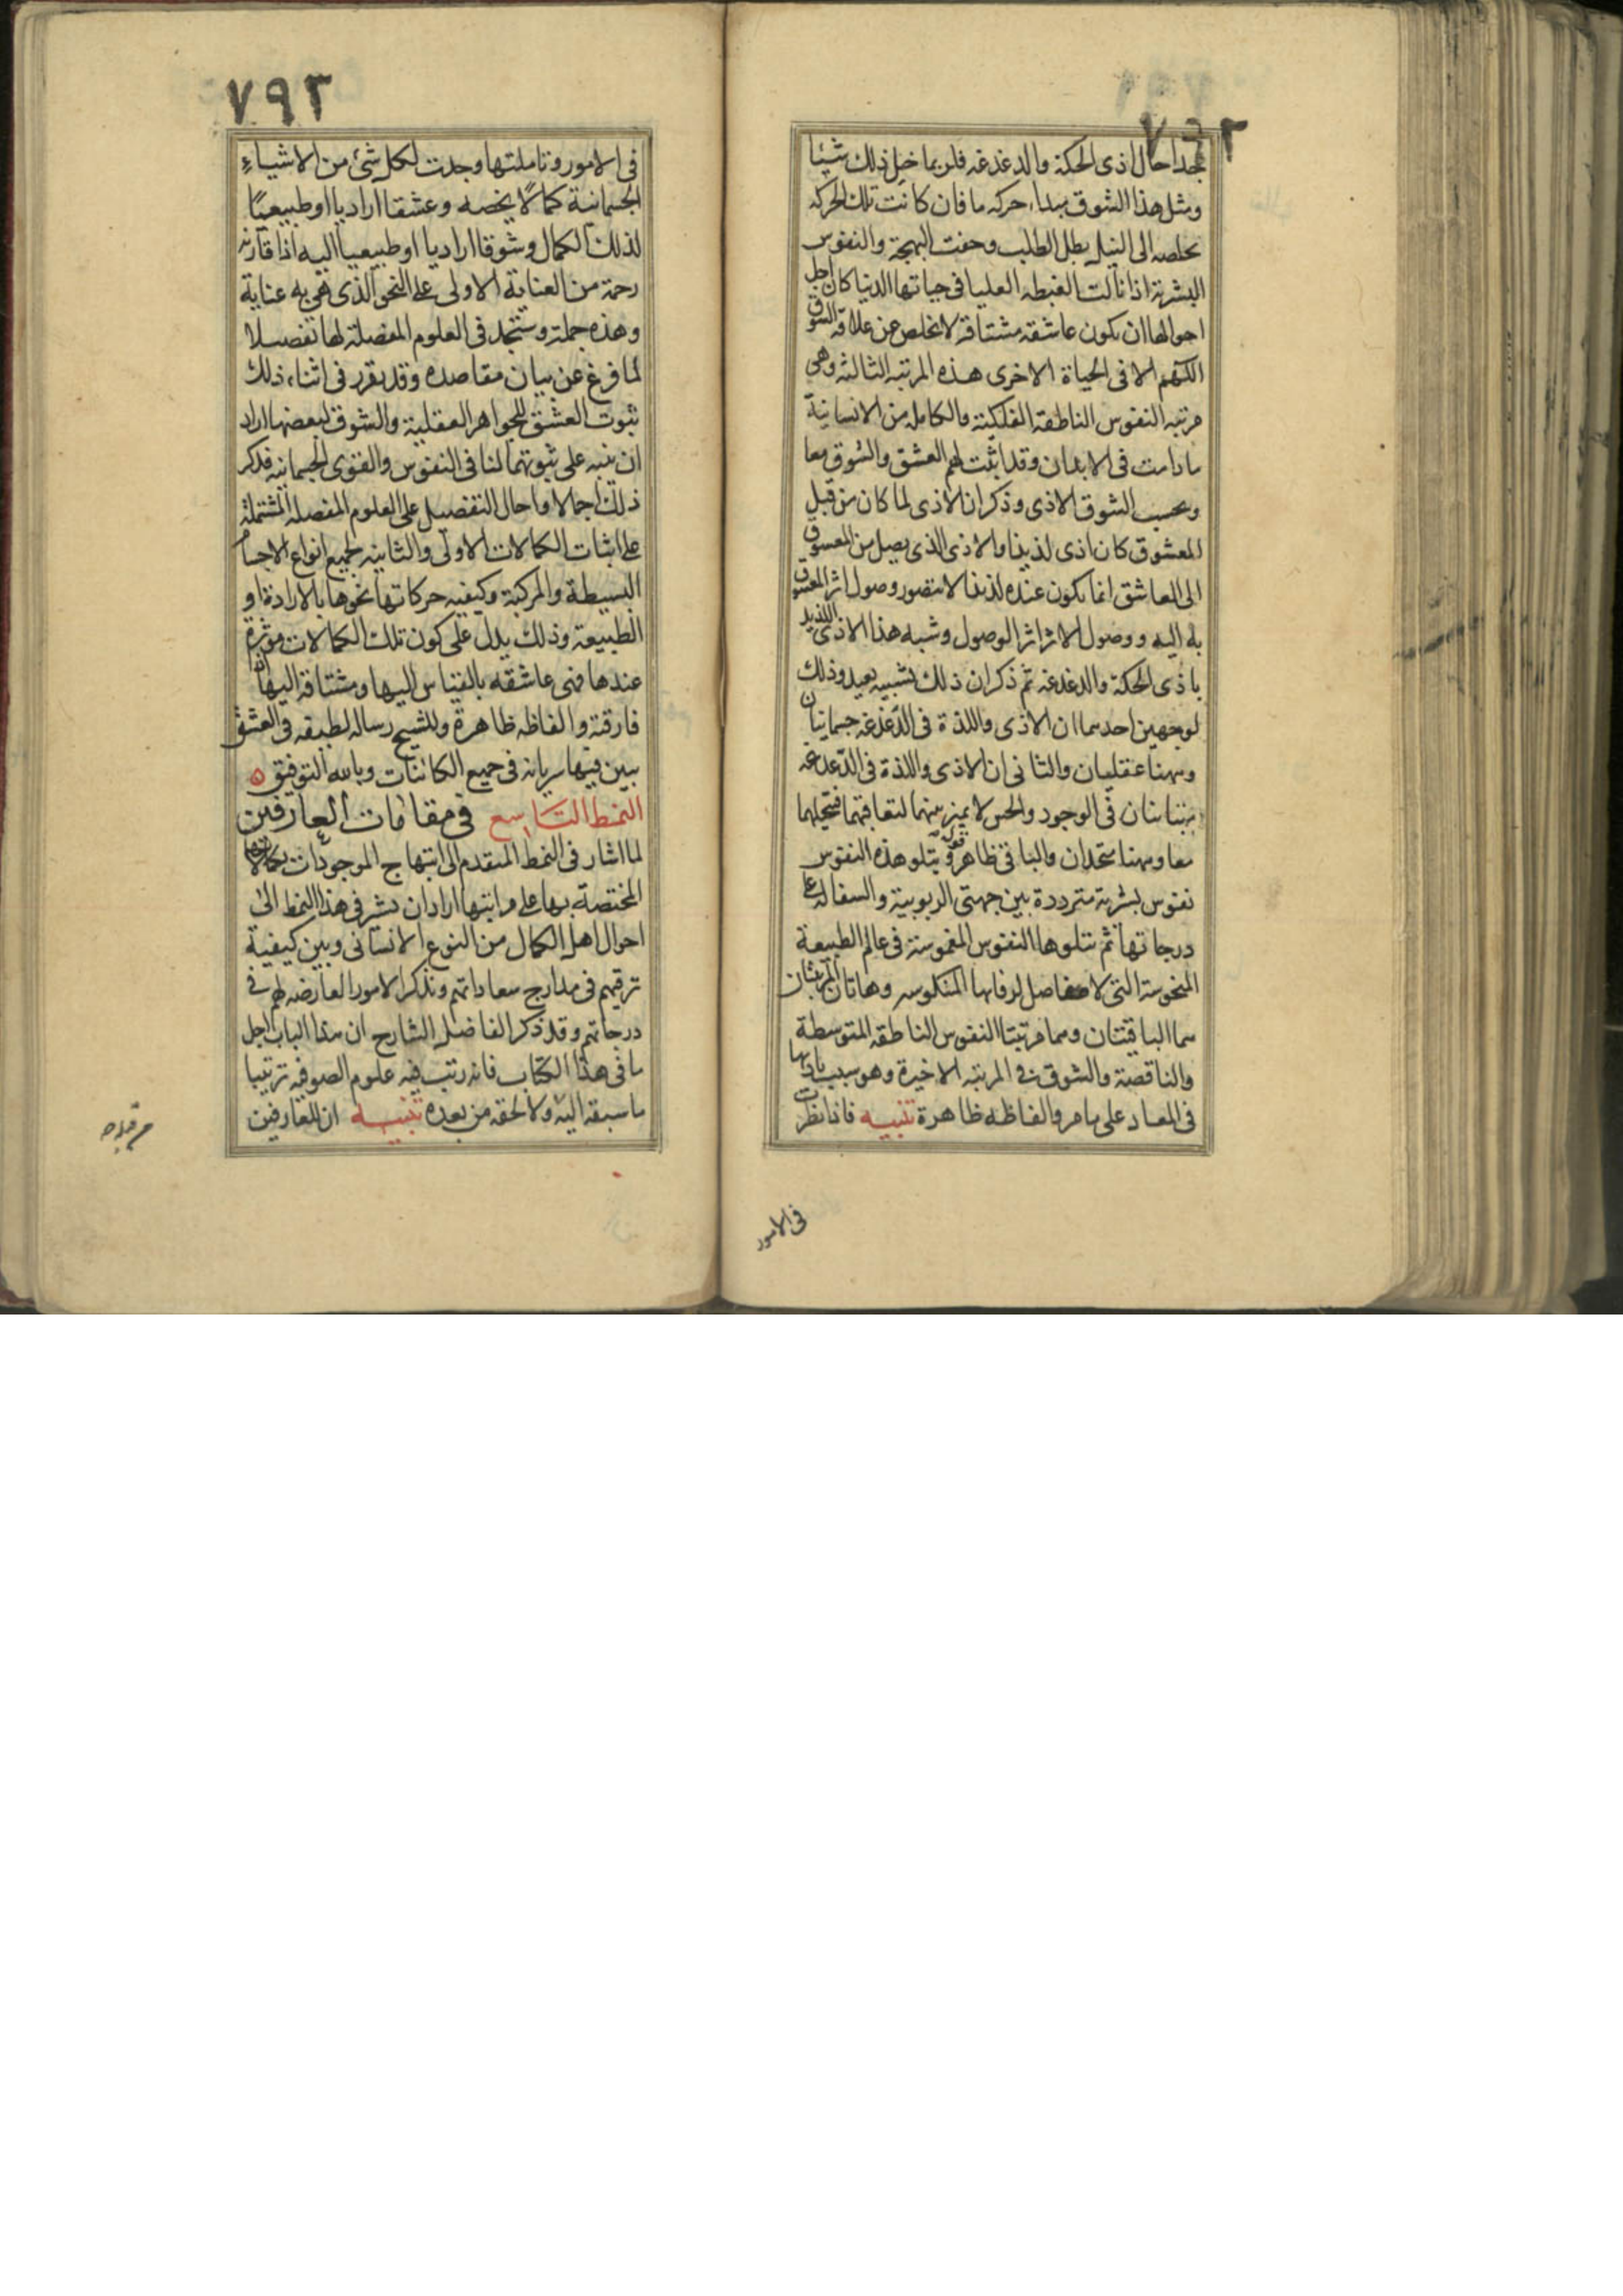 ٧٩٢
جدا حال اذى الحكة والدغدغة فلربما خيل ذلك شيئا
ومثل هذا الشوق مبداء حركه ما فان كانت تلك الحركه
مخلصه الى النيل بطل الطلب وحقت البهجة والنفوس
البشرية اذا نالت الغبطه العليا فى حياتها الدنيا كان اجل
احوالها ان يكون عاشقه مشتاقة لا تخلص عن علاقة الشوق
اللهم الا فى الحياة الاخرى هذه المرتبه الثالثه وهى
مرتبه النفوس الناطقه الفلكية والكامله من الانسانية
ما دامت فى الابدان وقد اثبت لهم العشق والشوق معا
وبحسب الشوق الاذى وذكر ان الاذى لما كان من قبل
المعشوق كان اذى لذيذا والاذى الذى يصل من المعشوق
الى العاشق انما يكون عنده لذيذا لانه تصور وصول اثر المعشوق
به اليه ووصول الاثر اثر الوصول وشبه هذا الاذى اللذيذ
باذى الحكة والدغدغه ثم ذكر ان ذلك تشبيه بعيد وذلك
لوجهين احدهما ان الاذى واللذة فى الدغدغه جسمانيان
وههنا عقليان والثانى ان الاذى واللذة فى الدغدغه
متباينان فى الوجود والحس لا يميز بينهما لتعاقبهما فتخيلهما
معا وههنا متحدان والباقى ظاهر قوله ويتلو هذه النفوس
نفوس بشرية مترددة بين جهتى الربوبية والسفالة على
درجاتها ثم يتلوها النفوس المغموسة فى عالم الطبيعة
المنحوسة التى لا مفاصل لرقابها المنكوسه وهاتان المرتبتان
هما الباقيتان وهما مرتبتا النفوس الناطقه المتوسطة
والناقصة والشوق فى المرتبه الاخيرة وهو سبب تاذيها
فى المعاد على ما مر والفاظه ظاهرة تنبيه فاذا نظرت
فى الامور
٧٩٣
فى الامور وتاملتها وجدت لكل شئ من الاشياء
الجسمانية كمالا يخصه وعشقا اراديا او طبيعيا
لذلك الكمال وشوقا اراديا او طبيعيا اليه اذا فارقه
رحمة من العناية الاولى على النحو الذى هى به عناية
وهذه جملة وستجد فى العلوم المفصلة لها تفصيلا
لما فرغ عن بيان مقاصده وقد يقرر فى اثناء ذلك
ثبوت العشق للجواهر العقلية والشوق لبعضها اراد
ان ينبه على ثبوتهما لنا فى النفوس والقوى الجسمانيه فذكر
ذلك اجمالا واحال التفصيل على العلوم المفصلة المشتملة
على اثبات الكمالات الاولى والثانيه لجميع انواع الاجسام
البسيطة والمركبة وكيفيه حركاتها نحوها بالارادة او
الطبيعة وذلك يدل على كون تلك الكمالات موثرة
عندها فهى عاشقه بالقياس اليها ومشتاقة اليها اذا
فارقته والفاظه ظاهرة وللشيخ رساله لطيفه فى العشق
يبين فيها سريانه فى جميع الكائنات وبالله التوفيق ٥
النمط التاسع فى مقامات العارفين
لما اشار فى النمط المتقدم الى ابتهاج الموجودات بكمالاتها
المختصة بها على مراتبها اراد ان يشير فى هذا النمط الى
احوال اهل الكمال من النوع الانسانى ويبين كيفية
ترقيهم فى مدارج سعاداتهم ويذكر الامور العارضه لهم فى
درجاتهم وقد ذكر الفاضل الشارح ان هذا الباب اجل
ما فى هذا الكتاب فانه رتب فيه علوم الصوفيه ترتيبا
ما سبقه اليه ولا لحقه من بعده تنبيه ان للعارفين